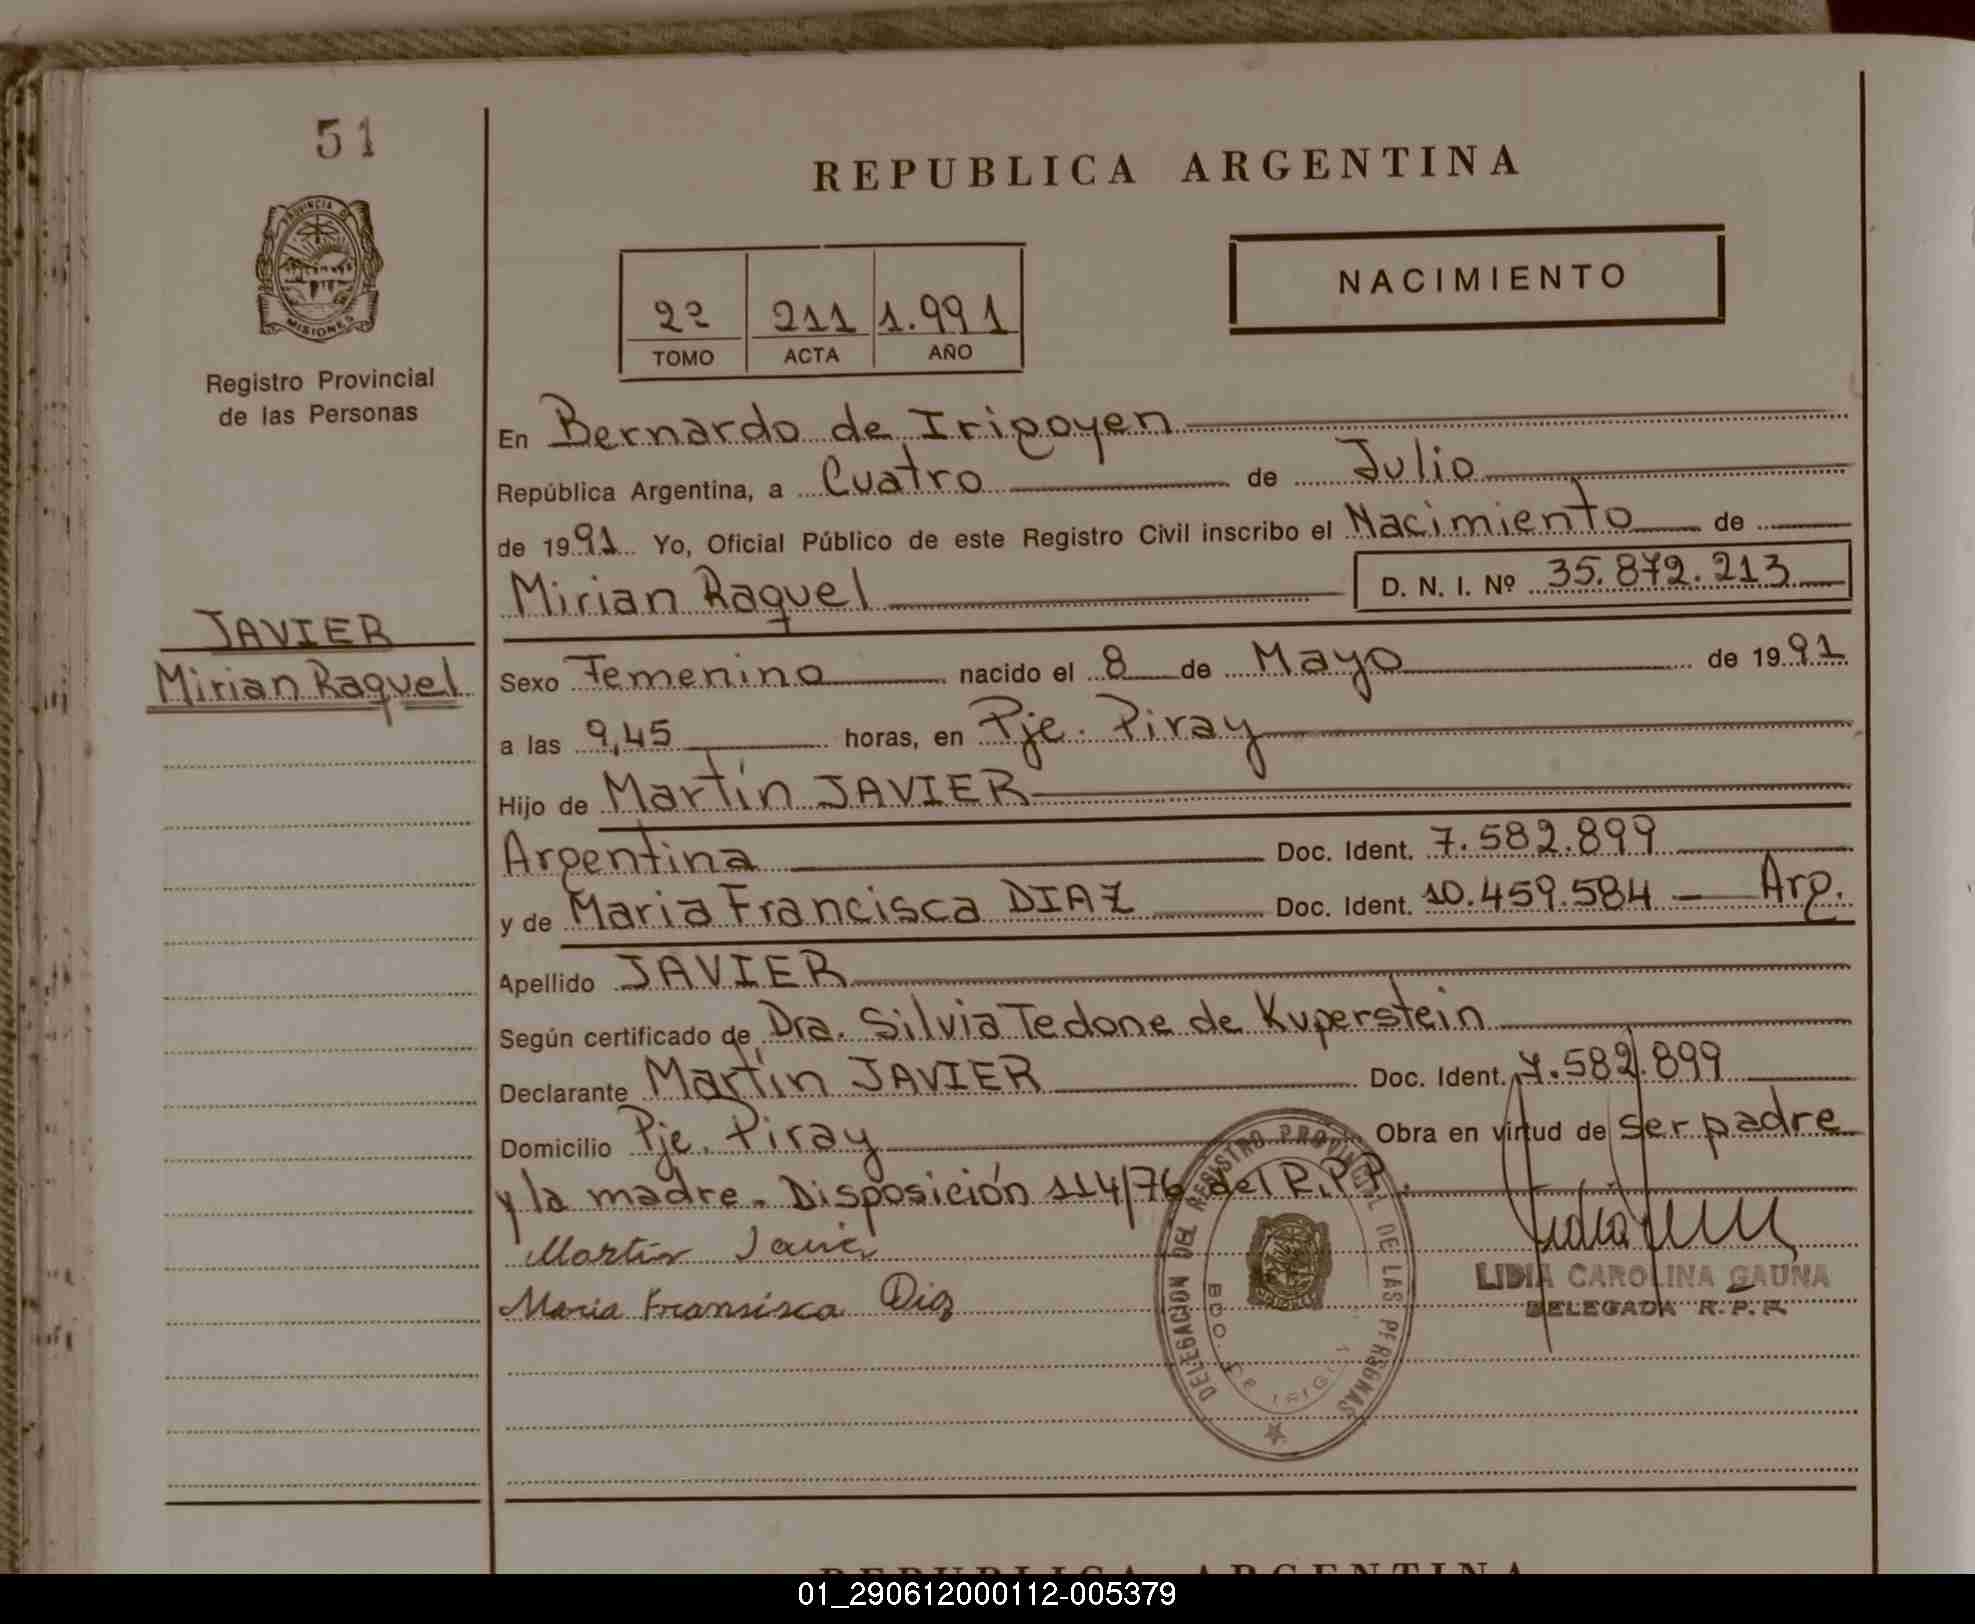 51
REPUBLICA ARGENTINA
PROVINCIA DE
MISIONES
Registro Provincial
de las Personas
NACIMIENTO
2º 211 1.991
TOMO ACTA AÑO
En Bernardo de Irigoyen
República Argentina, a Cuatro de Julio
de 1991 Yo, Oficial Público de este Registro Civil inscribo el Nacimiento de
Mirian Raquel D. N. I. Nº 35.872.213
JAVIER
Mirian Raquel
Sexo Femenino nacido el 8 de Mayo de 1991
a las 9,45 horas, en Pje. Piray
Hijo de Martín JAVIER
Argentina Doc. Ident. 7.582.899
y de Maria Francisca DIAZ Doc. Ident. 10.459.584 — Arg.
Apellido JAVIER
Según certificado de Dra. Silvia Tedone de Kuperstein
Declarante Martín JAVIER Doc. Ident. 7.582.899
Domicilio Pje. Piray Obra en virtud de ser padre
y la madre. Disposición 114/76 del R.P.P.
Martin Javie
Maria Fransisca Diaz
DELEGACION DEL REGISTRO PROVINCIAL DE LAS PERSONAS
BDO. DE IRIGOY
LIDIA CAROLINA GAUNA
DELEGADA R. P. P.
REPUBLICA ARGENTINA
01_290612000112-005379